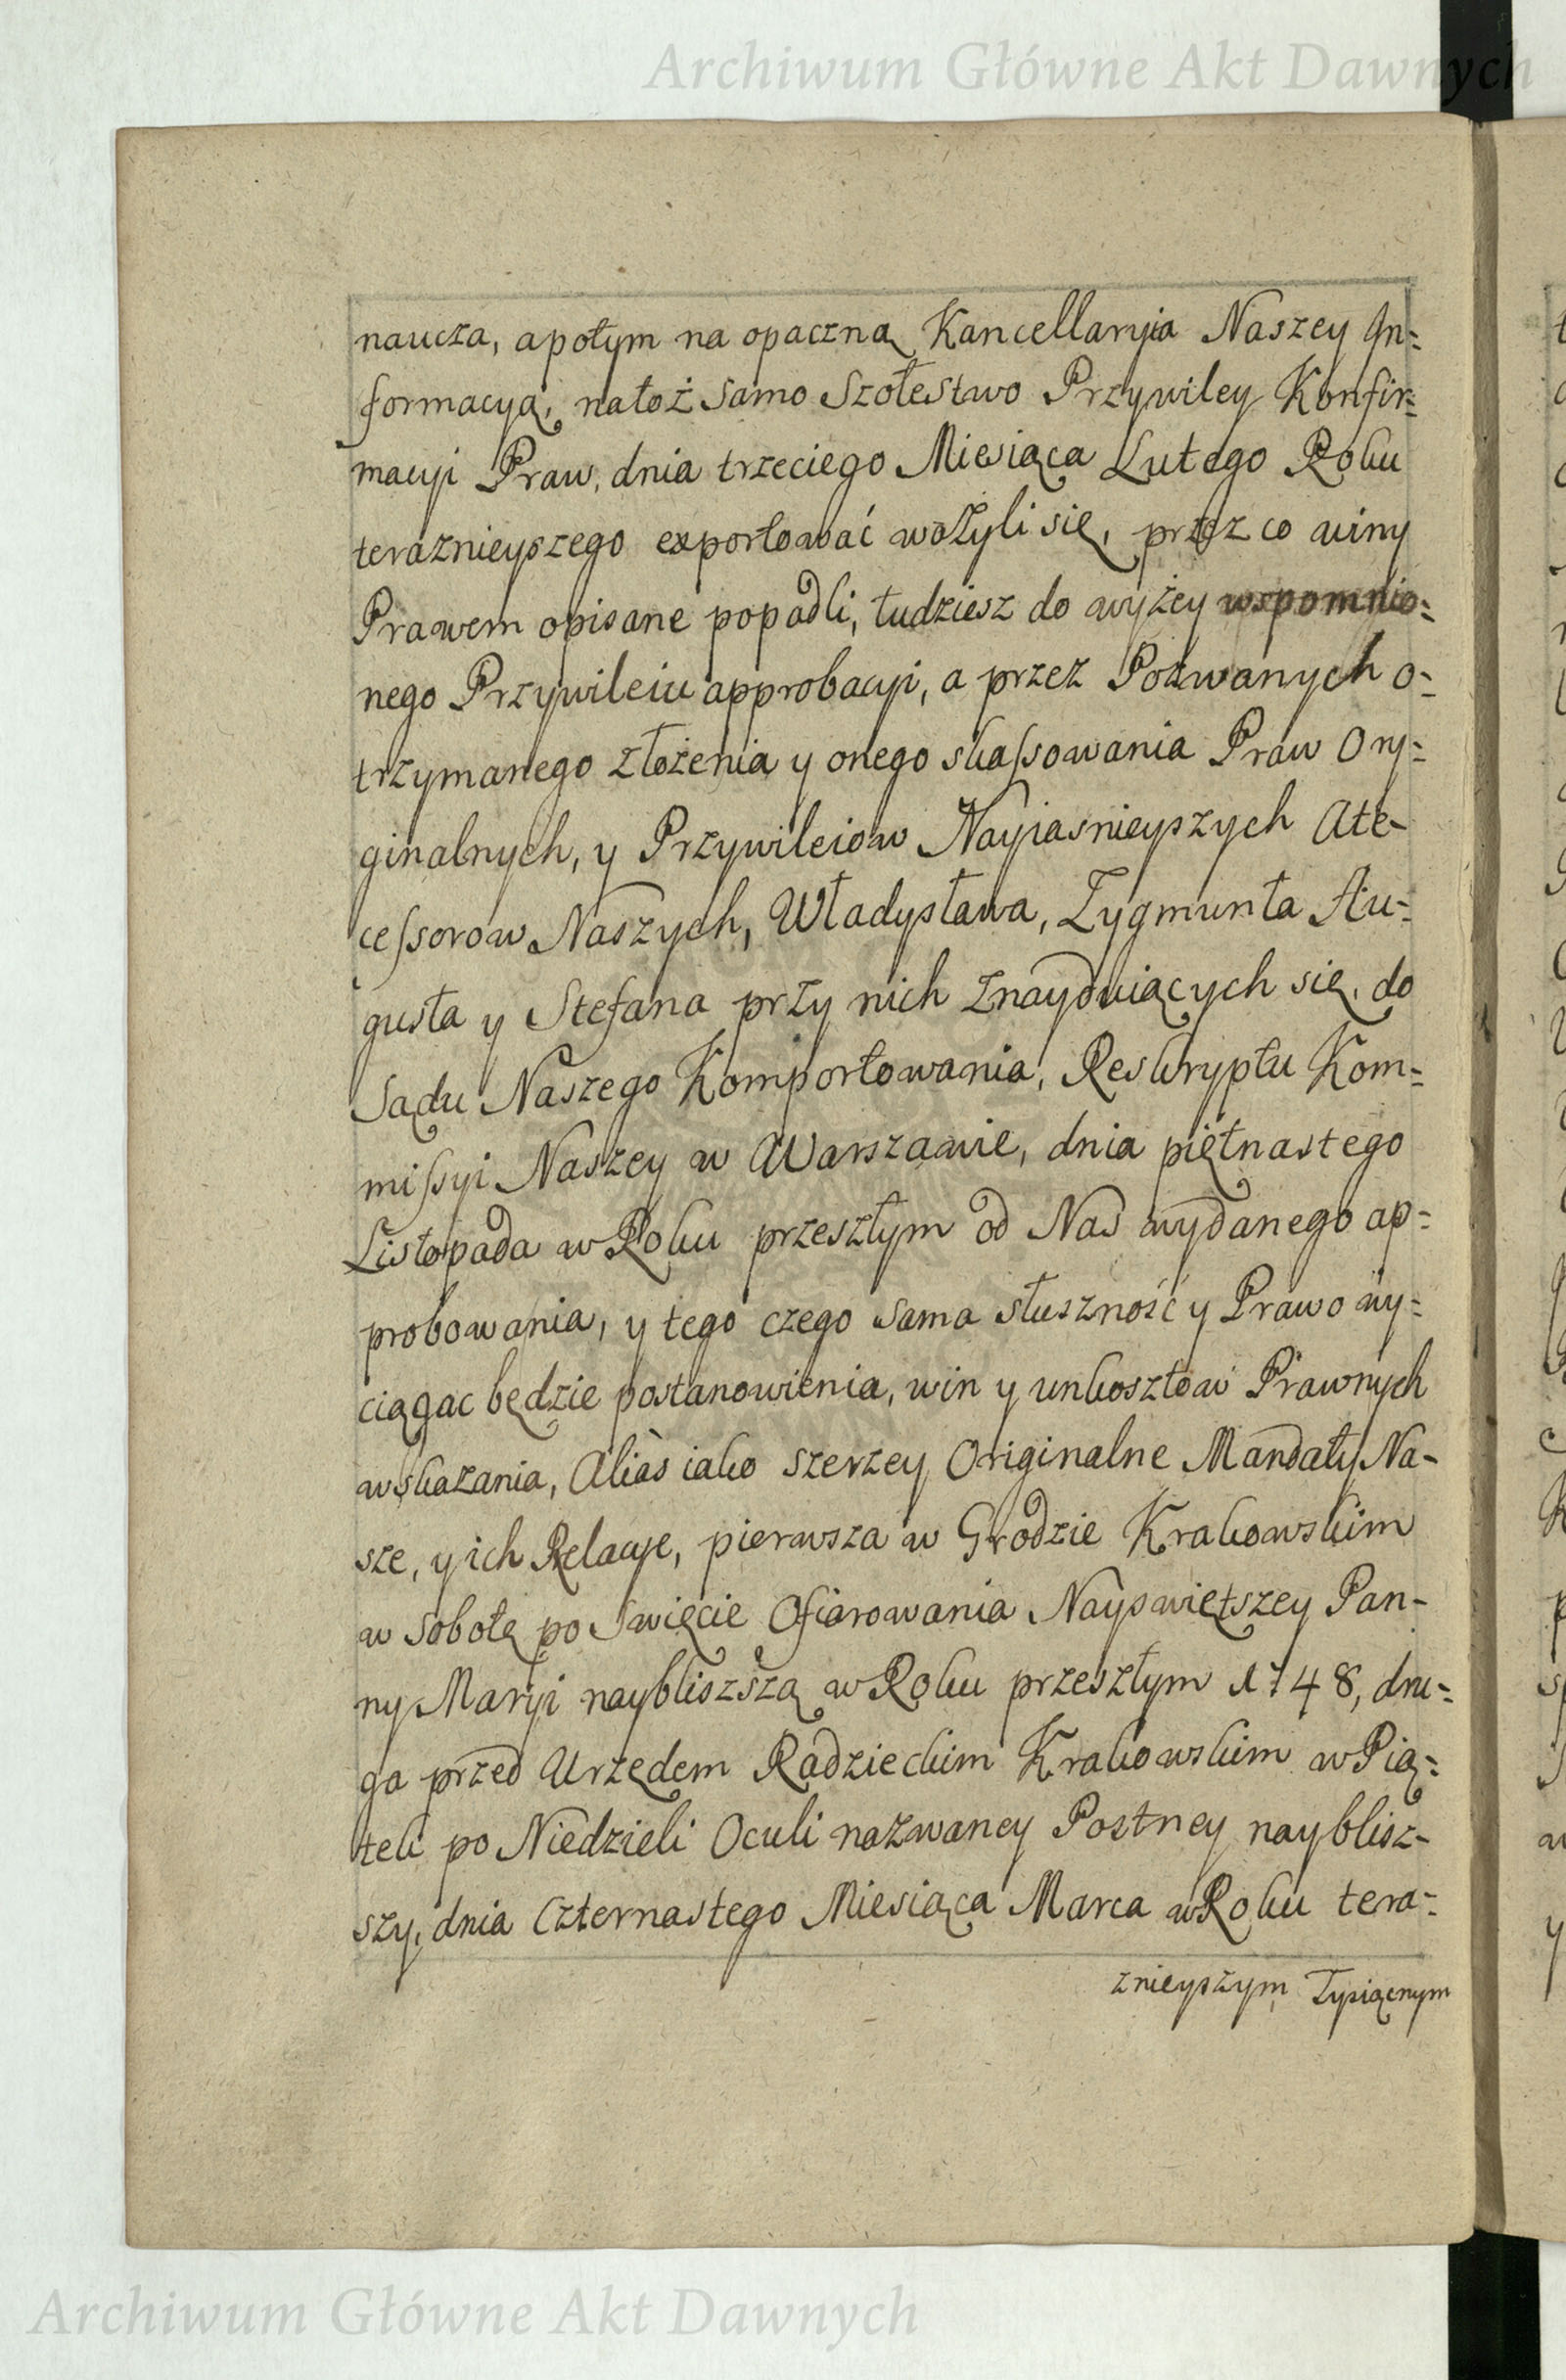 Archiwum Główne Akt Dawnych
naucza, a potym na opaczną Kancellaryia Naszey In=
formacyą, natoż samo Szołestwo Przywiley Konfir=
macyi Praw, dnia trzeciego Miesiąca Lutego Roku
teraznieyszego exportować ważyli się, przez co winy
Prawem opisane popadli, tudziesz do wyżey wspomnio=
nego Przywileiu approbacyi, a przez Pozwanych o=
trzymanego złożenia y onego skassowania Praw Ory=
ginalnych, y Przywileiow Nayiasnieyszych Ate-
cessorow Naszych, Władysława, Zygmunta Au=
gusta y Stefana przy nich znayduiących się, do
Sądu Naszego Komportowania, Reskryptu Kom=
missyi Naszey w Warszawie, dnia piętnastego
Listopada w Roku przeszłym od Nas wydanego ap=
probowania, y tego czego sama słuszność y Prawo wy=
ciągac będzie postanowienia, win y unkosztow Prawnych
wskazania, Aliàs iako szerzey Originalne Mandaty Na-
sze, y ich Relacye, pierwsza w Grodzie Krakowskim
w Sobotę po Swięcie Ofiarowania Nayswiętszey Pan-
ny Maryi naybliszszą w Roku przeszłym 1748, dru=
ga przed Urzędem Radzieckim Krakowskim w Pią=
tek po Niedzieli Oculi nazwaney Postney nayblisz-
szy, dnia Czternastego Miesiąca Marca w Roku tera=
znieyszym Tysiącnym
Archiwum Główne Akt Dawnych